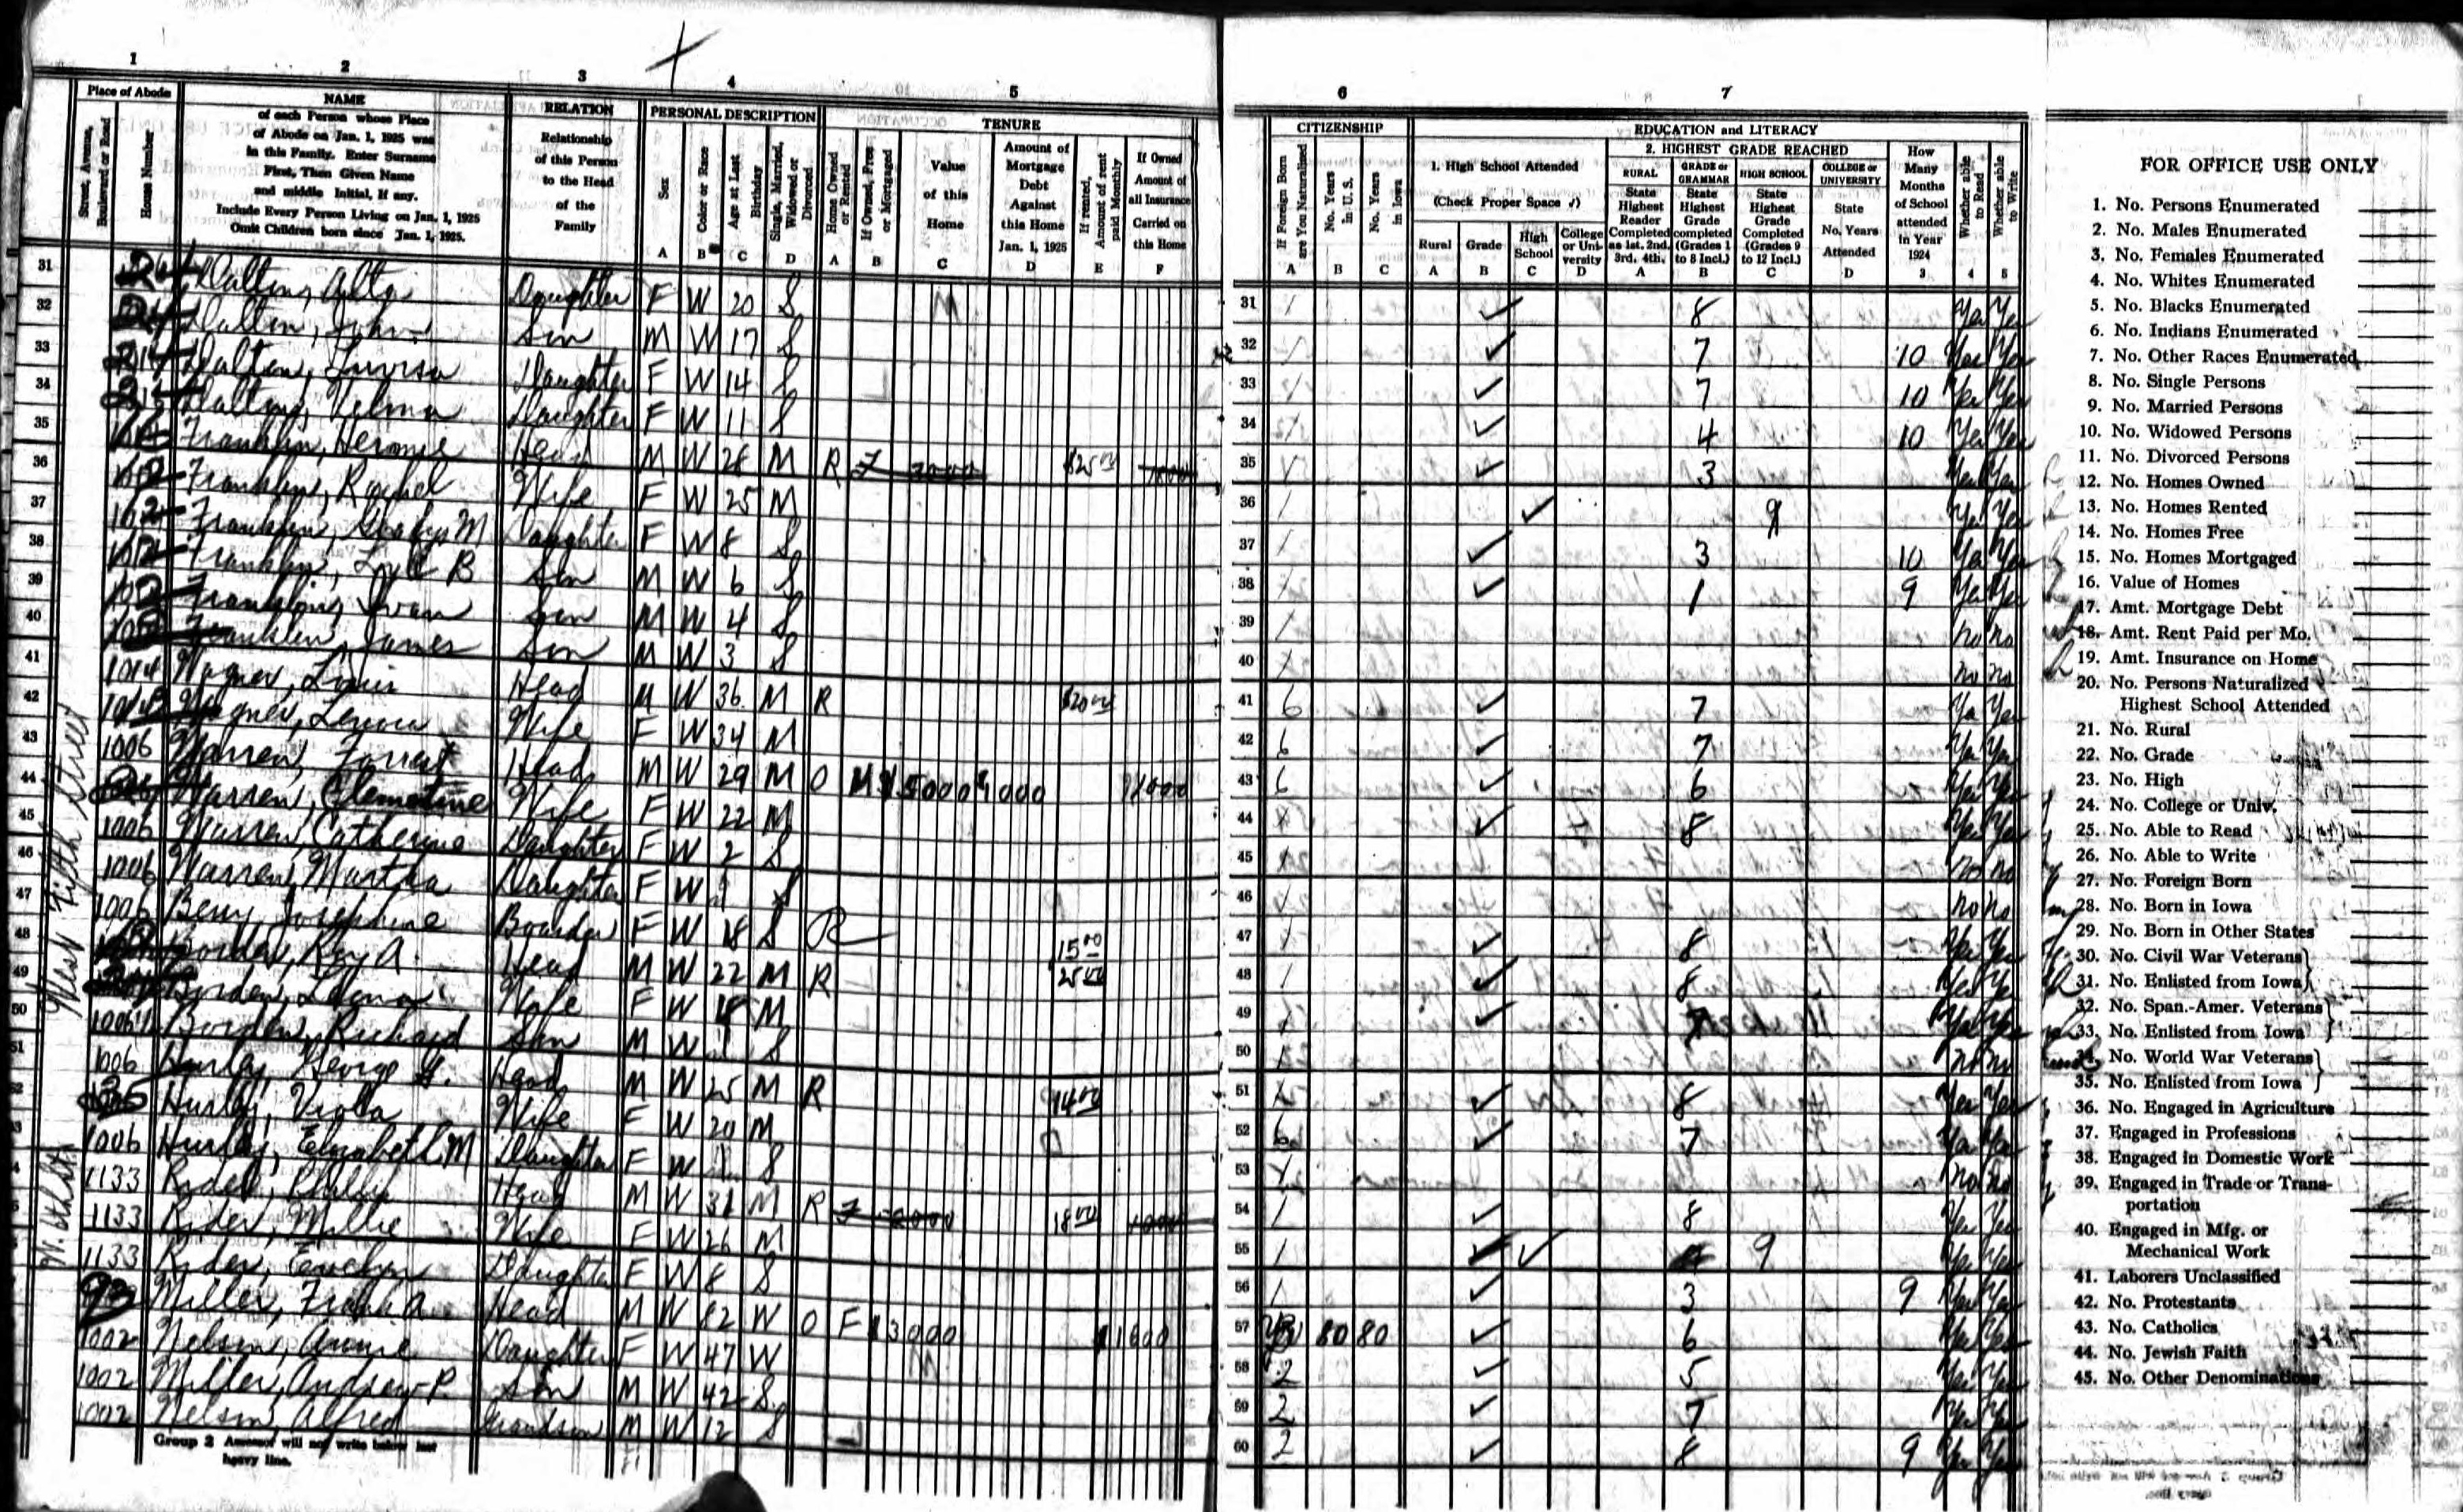 1 2 3 4 5 6 7
Place of Abode
Street, Avenue, Boulevard or Road
House Number
NAME
of each Person whose Place
of Abode on Jan. 1, 1925 was
in this Family. Enter Surname
First, Then Given Name
and middle Initial, if any.
Include Every Person Living on Jan. 1, 1925
Omit Children born since Jan. 1, 1925.
RELATION
Relationship
of this Person
to the Head
of the
Family
PERSONAL DESCRIPTION
Sex
Color or Race
Age at Last Birthday
Single, Married, Widowed or Divorced
A B C D
TENURE
Home Owned or Rented
If Owned, Free or Mortgaged
Value
of this
Home
Amount of
Mortgage
Debt
Against
this Home
Jan. 1, 1925
If rented, Amount of rent paid Monthly
If Owned
Amount of
all Insurance
Carried on
this Home
A B C D E F
CITIZENSHIP
If Foreign Born are You Naturalized
No. Years in U. S.
No. Years in Iowa
A B C
EDUCATION and LITERACY
1. High School Attended
(Check Proper Space ✓)
Rural Grade High School College or University
A B C D
2. HIGHEST GRADE REACHED
RURAL
State Highest Reader Completed as 1st. 2nd. 3rd. 4th.
GRADE or GRAMMAR
State Highest Grade completed (Grades 1 to 8 Incl.)
HIGH SCHOOL
State Highest Grade Completed (Grades 9 to 12 Incl.)
COLLEGE or UNIVERSITY
State No. Years Attended
A B C D
How Many Months of School attended in Year 1924
3
Whether able to Read
4
Whether able to Write
5
31 Dalton, Alta Daughter F W 20 S 1 ✓ 8 Yes Yes
32 Dalton, John Son M W 17 S 1 ✓ 7 10 Yes Yes
33 Dalton, Daughter F W 14 S 1 ✓ 7 10 Yes Yes
34 Dalton, Velma Daughter F W 11 S 1 ✓ 4 10 Yes Yes
35 Franklin, Head M W 28 M R F 1 ✓ 3 Yes Yes
36 Franklin, Rachel Wife F W 25 M 1 ✓ 9 Yes Yes
37 Franklin, Gladys M Daughter F W 8 S 1 ✓ 3 10 Yes Yes
38 Franklin, B Son M W 6 S 1 ✓ 1 9 Yes Yes
39 Franklin, Ivan Son M W 4 S 1 no no
40 Franklin, James Son M W 3 S 1 no no
41 1014 Wagner, Louis Head M W 36 M R $20.00 6 ✓ 7 Yes Yes
42 Wagner, Lenora Wife F W 34 M 6 ✓ 7 Yes Yes
43 1006 Warren, Forrest Head M W 29 M O M 5000 1000 1000 6 ✓ 6 Yes Yes
44 Warren, Clementine Wife F W 22 M ✓ 8 Yes Yes
45 1006 Warren, Catherine Daughter F W 2 S 1 no no
46 1006 Warren, Martha Daughter F W S 1 no no
47 1006 Berry, Josephine Boarder F W 18 S R 15.00 1 ✓ 8 Yes Yes
48 Borden, Ray A. Head M W 22 M R 25.00 1 ✓ 8 Yes Yes
49 Borden, Wife F W 18 M 1 ✓ 7 Yes Yes
50 1006 Borden, Richard Son M W S 1 no no
51 1006 Hurley, George Head M W 25 M R 14.00 1 ✓ 8 Yes Yes
52 Hurley, Viola Wife F W 20 M 6 ✓ 7 Yes Yes
53 1006 Hurley, Elizabeth M Daughter F W S 1 no no
54 1133 Rider, Philip Head M W 31 M R F 2000 18.00 1000 1 ✓ 8 Yes Yes
55 1133 Rider, Millie Wife F W 26 M 1 ✓ 9 Yes Yes
56 1133 Rider, Evelyn Daughter F W 8 S 1 ✓ 3 9 Yes Yes
57 Miller, Frank A. Head M W 82 W O F 3000 1600 80 80 ✓ 6 Yes Yes
58 1002 Nelson, Annie Daughter F W 47 W 2 ✓ 5 Yes Yes
59 1002 Miller, Andrew P. Son M W 42 S 2 ✓ 7 Yes Yes
60 1002 Nelson, Alfred Grandson M W 12 S 2 ✓ 8 9 Yes Yes
West Fifth Street
W. 6th St.
Group 2 Assessor will not write below last
heavy line.
FOR OFFICE USE ONLY
1. No. Persons Enumerated
2. No. Males Enumerated
3. No. Females Enumerated
4. No. Whites Enumerated
5. No. Blacks Enumerated
6. No. Indians Enumerated
7. No. Other Races Enumerated
8. No. Single Persons
9. No. Married Persons
10. No. Widowed Persons
11. No. Divorced Persons
12. No. Homes Owned
13. No. Homes Rented
14. No. Homes Free
15. No. Homes Mortgaged
16. Value of Homes
17. Amt. Mortgage Debt
18. Amt. Rent Paid per Mo.
19. Amt. Insurance on Home
20. No. Persons Naturalized
Highest School Attended
21. No. Rural
22. No. Grade
23. No. High
24. No. College or Univ.
25. No. Able to Read
26. No. Able to Write
27. No. Foreign Born
28. No. Born in Iowa
29. No. Born in Other States
30. No. Civil War Veterans
31. No. Enlisted from Iowa
32. No. Span.-Amer. Veterans
33. No. Enlisted from Iowa
34. No. World War Veterans
35. No. Enlisted from Iowa
36. No. Engaged in Agriculture
37. Engaged in Professions
38. Engaged in Domestic Work
39. Engaged in Trade or Trans-
portation
40. Engaged in Mfg. or
Mechanical Work
41. Laborers Unclassified
42. No. Protestants
43. No. Catholics
44. No. Jewish Faith
45. No. Other Denominations